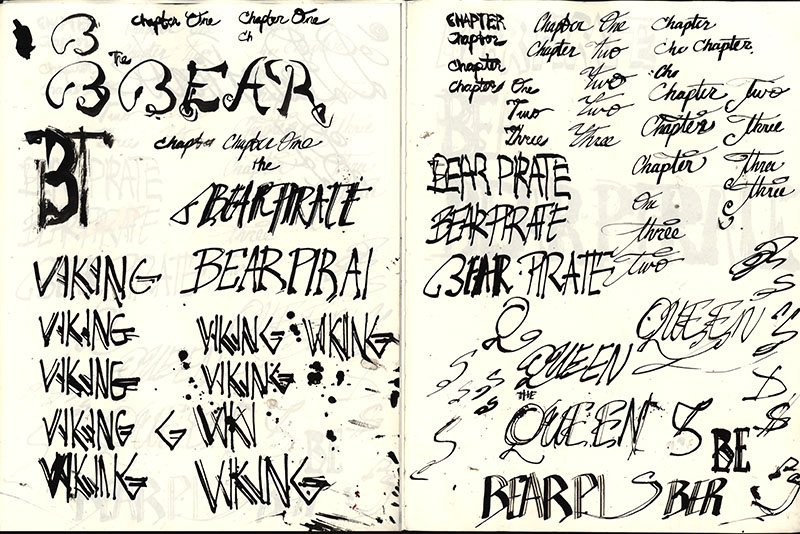 Chapter One Chapter One
B Ch
The
B BEAR
BT
Chapter Chapter One
the
BEAR PIRATE
VIKING BEAR PIRAT
VIKING VIKING VIKING
VIKING VIKING
VIKING G VIKI
VIKING VIKING
CHAPTER Chapter One Chapter
Chapter Chapter Two Cha Chapter
Chapter Two Cha
Chapter One Chapter Two
Two Two
Three Three Chapter Three
BEAR PIRATE Chapter Three
Three
BEAR PIRATE On
three
BEAR PIRATE two
Q QUEEN S
S QUEEN S
THE
QUEEN S
S BE
BEAR PI S BER